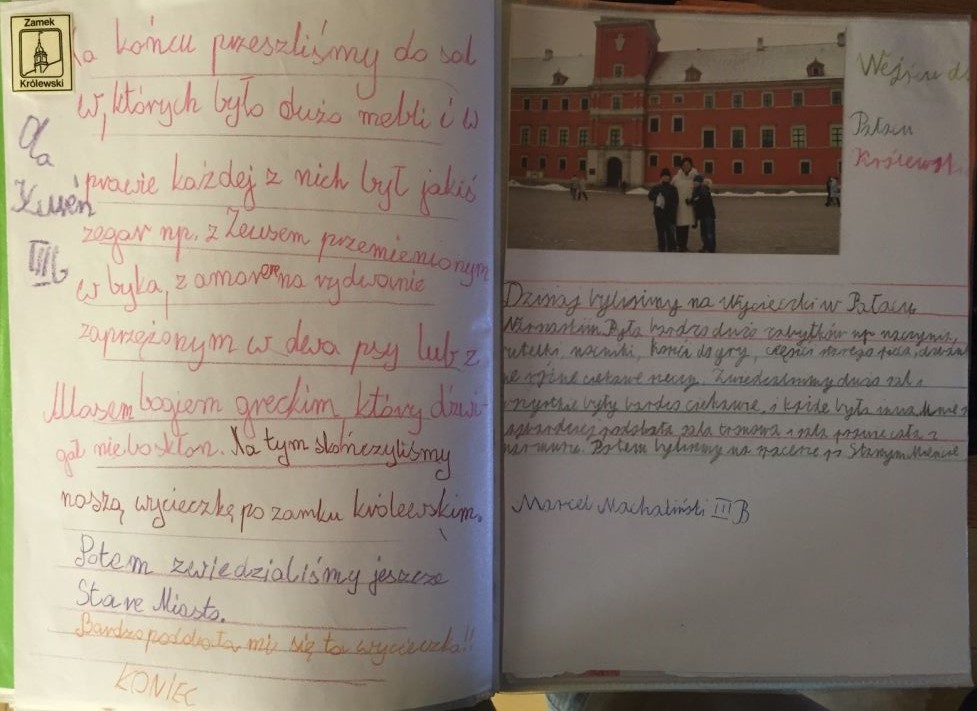 Zamek
Królewski
Na końcu przeszliśmy do sal
w, których było dużo mebli i w
prawie każdej z nich był jakiś
zegar np. z Zeusem przemienionym
w byka, z amorem na rydwanie
zaprzężonym w dwa psy lub z
Atlasem bogiem greckim, który dźwi-
gał nieboskłon. Na tym skończyliśmy
naszą wycieczkę po zamku królewskim.
Potem zwiedzialiśmy jeszcze
Stare Miasto.
Bardzo podobała mi się ta wycieczka!!
KONIEC
Ola
IIIb
Wejście do
Pałacu
Królewski
Dzisiaj byliśmy na Wycieczki w Pałacu
Była bardzo dużo zabytków np naczynia,
nocniki, kości do gry, części starego
różne ciekawe rzeczy. Zwiedzaliśmy dużo sal i
wszystkie były bardzo ciekawe, i każda była inna
podobała sala tronowa i sala
marmuru. Potem byliśmy na spacerze po Starym Mieście
Marcel Machaliński III B